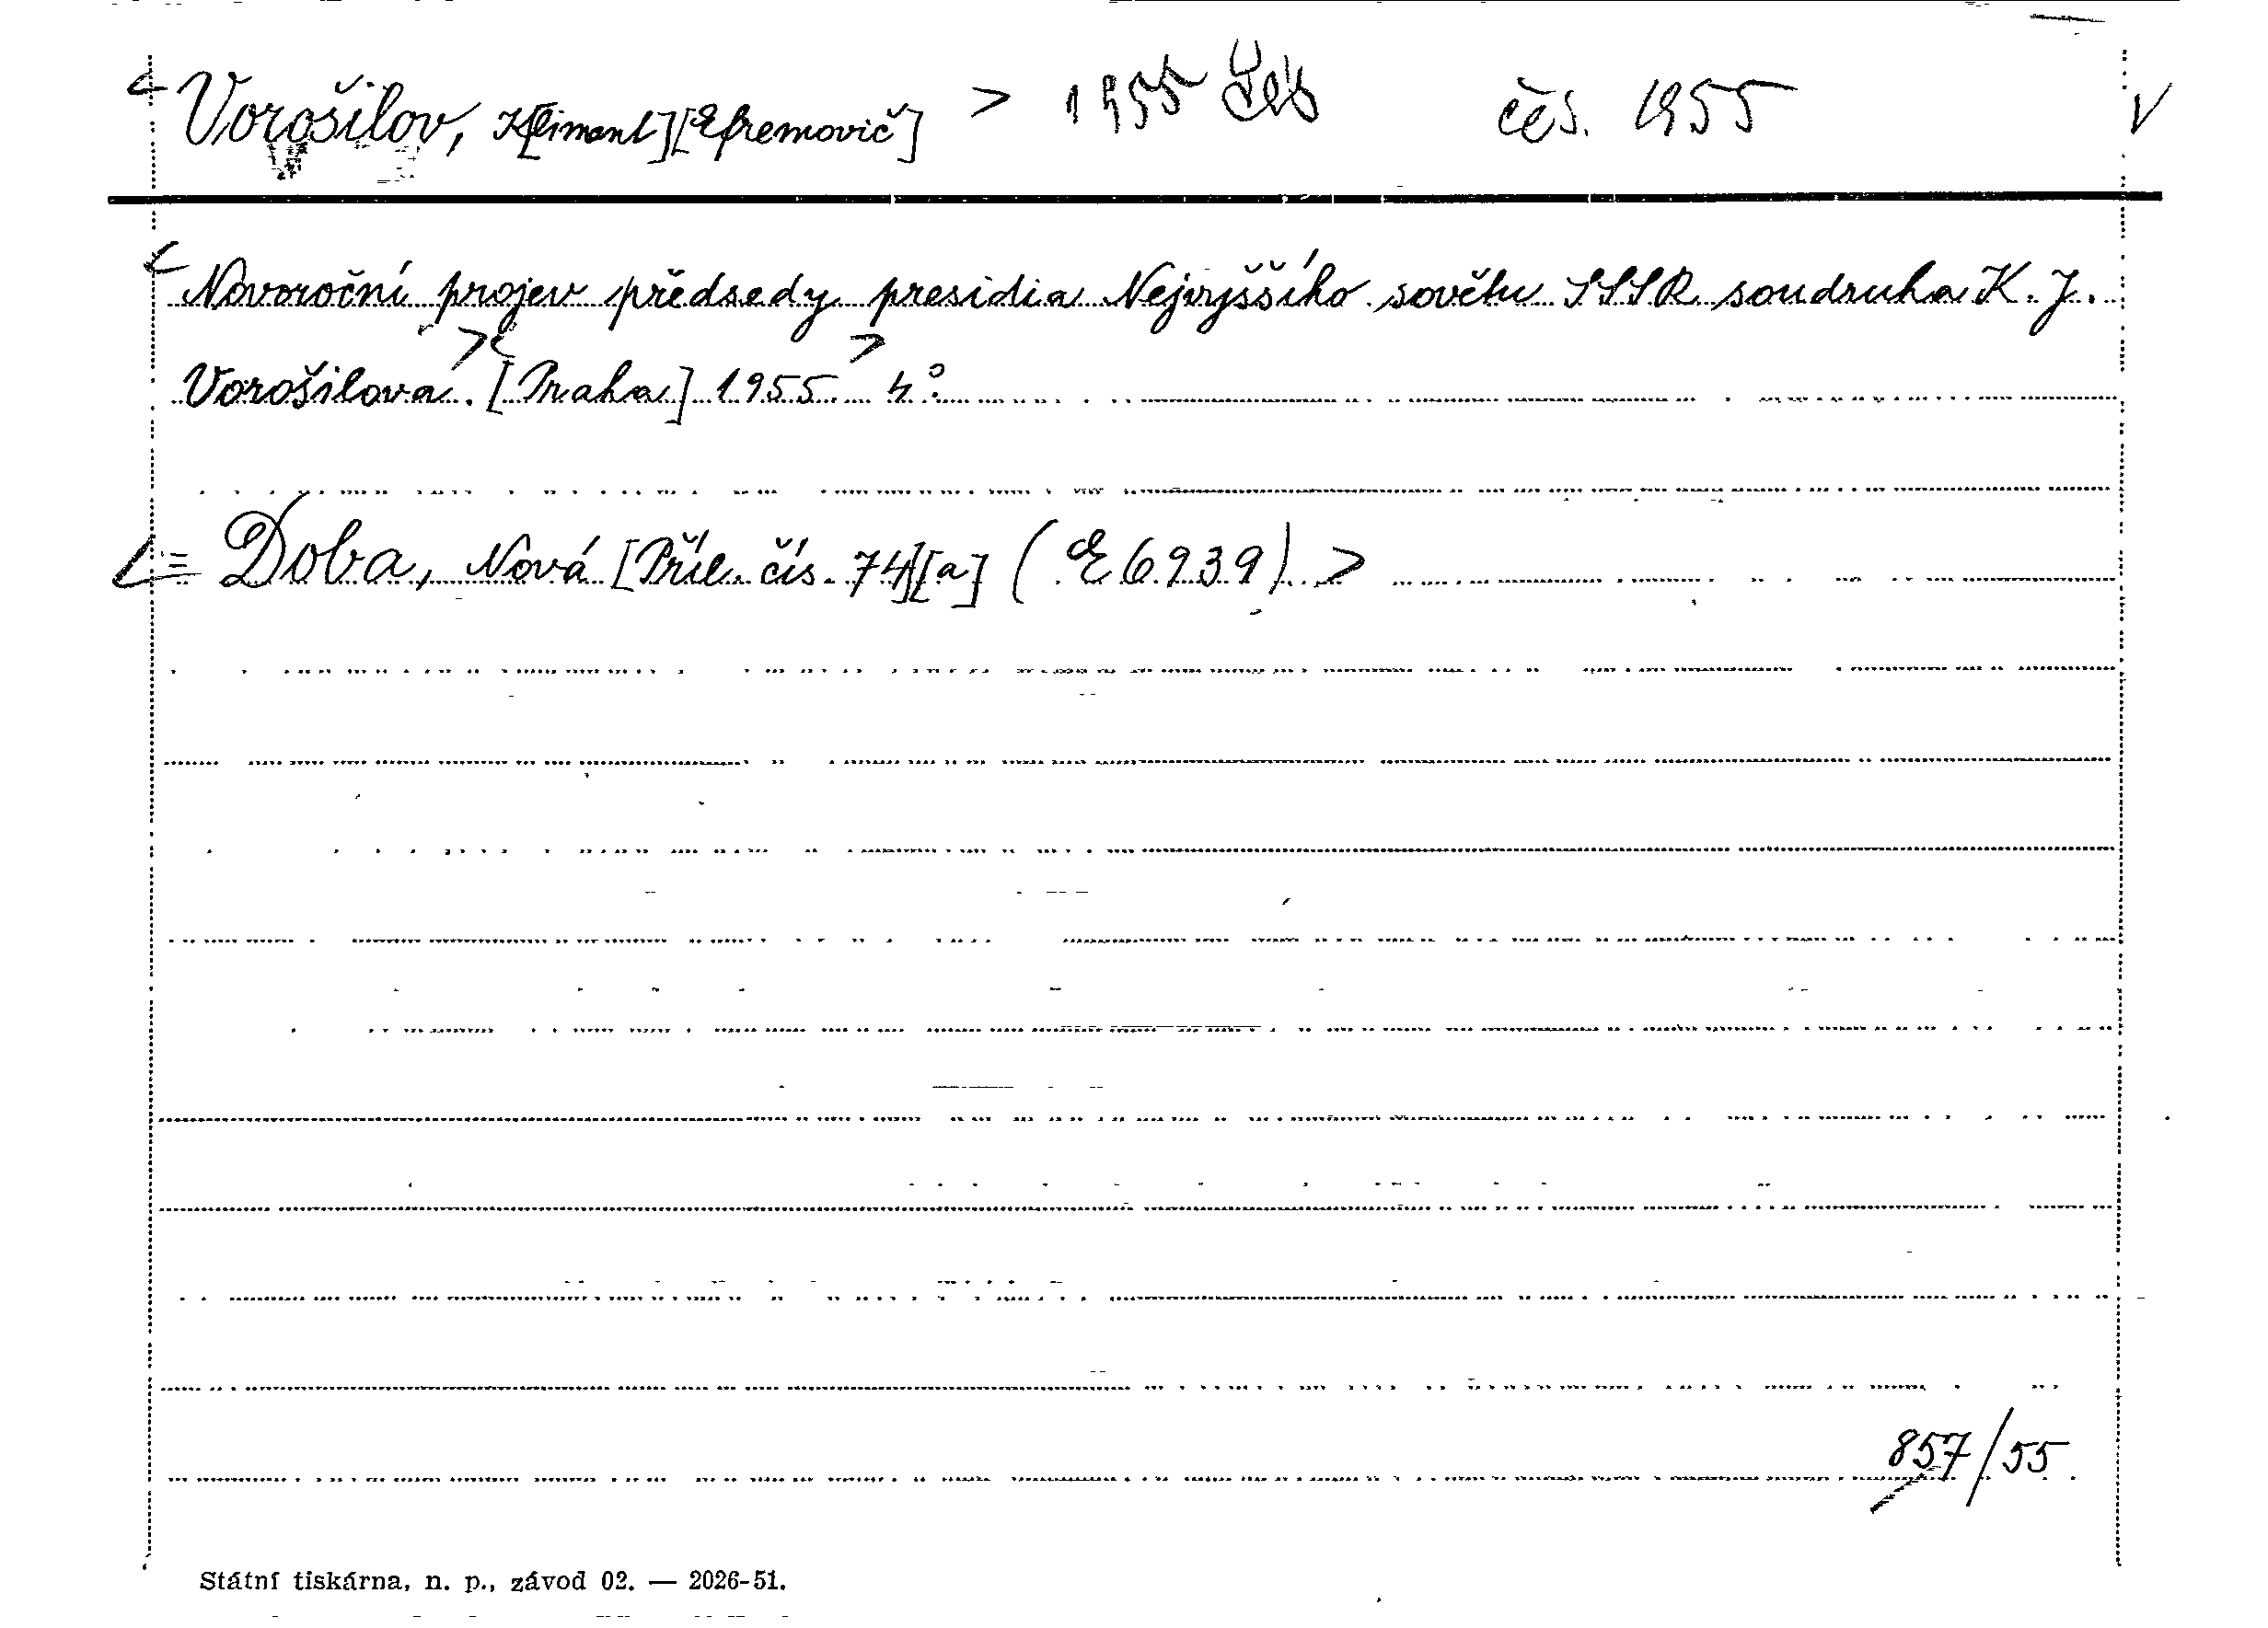 < Vorošilov, K[liment] [Efremovič] > 1955 čes. 1955 V
< Novoroční projev předsedy presidia Nejvyššího sovětu SSSR soudruha K. J.
Vorošilova. >< [Praha] 1955. > 4°.
< = Doba, Nová [Příl. čís. 74][a] (E 6939) >
857/55.
Státní tiskárna, n. p., závod 02. — 2026-51.